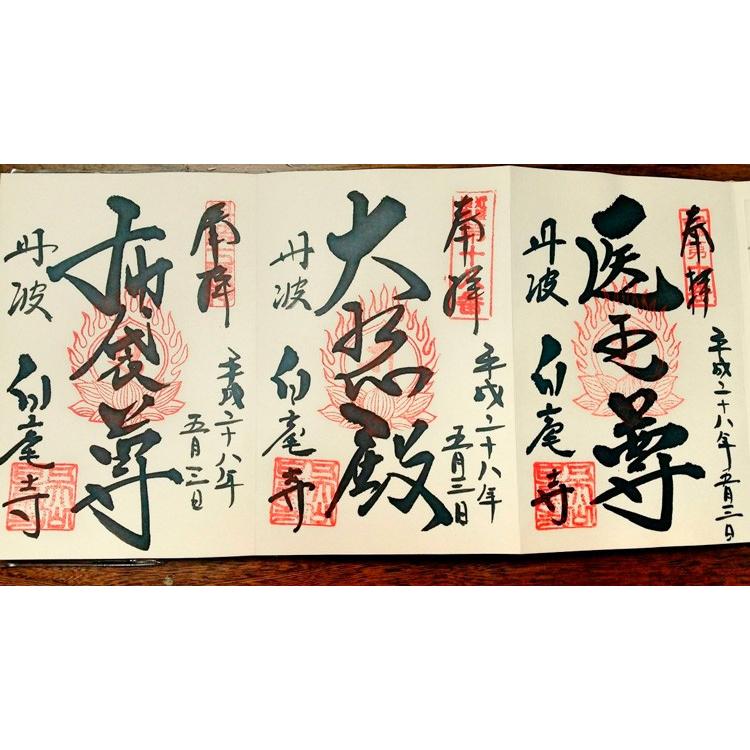 奉拝
平成二十八年五月三日
医王尊
丹波
白毫寺
奉拝
平成二十八年
五月三日
大悲殿
丹波
白毫寺
奉拝
平成二十八年
五月三日
布袋尊
丹波
白毫寺